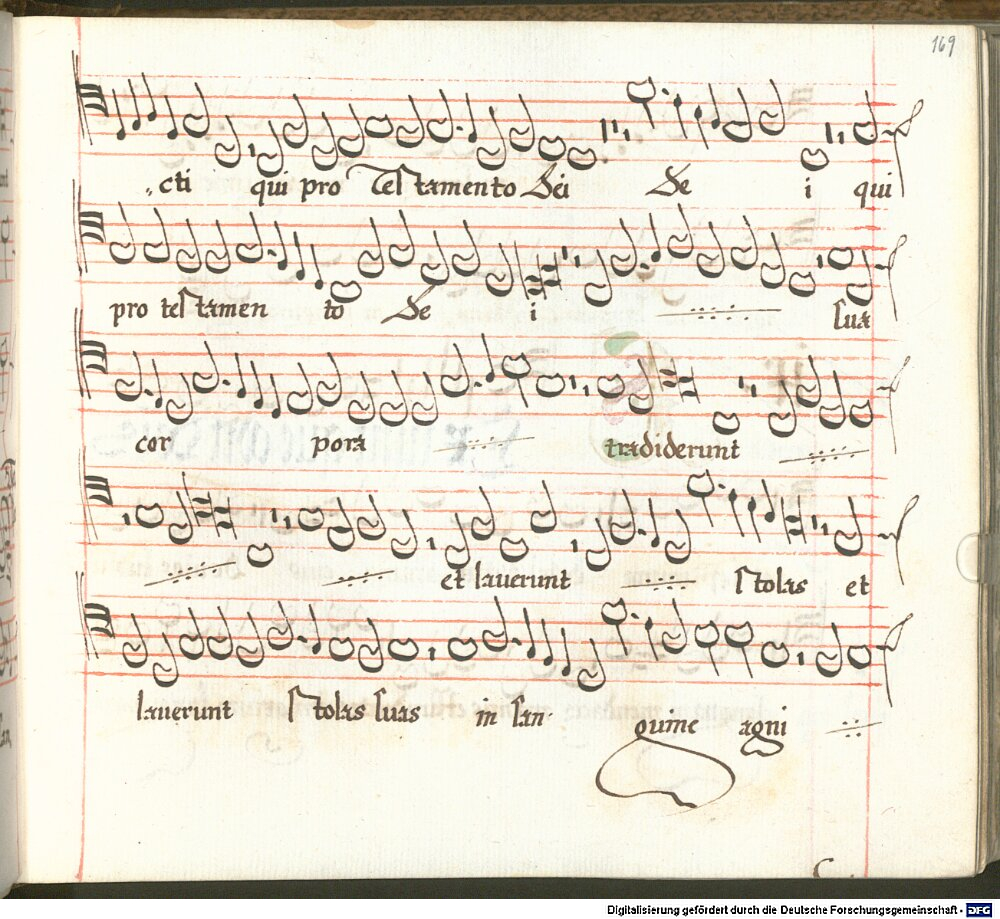 169
cti qui pro testamento Dei De i qui
pro testamen to De i sua
cor pora tradiderunt
et lauerunt stolas et
lauerunt stolas suas in san-
guine agni
Digitalisierung gefördert durch die Deutsche Forschungsgemeinschaft - DFG